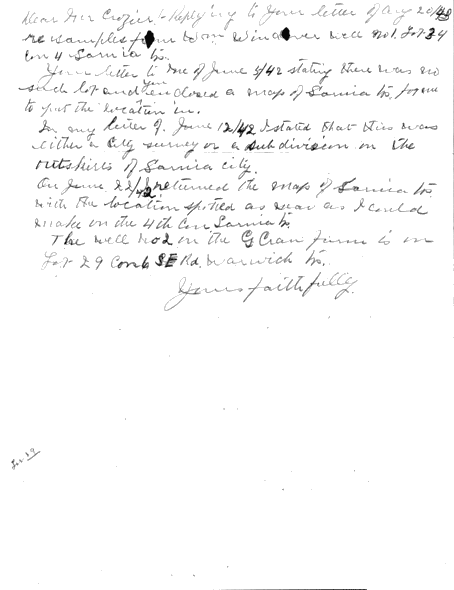 Dear Mr Crozier:- Replying to Your letter of Aug 20/43
re samples from Wm Windover well no 1, Lot 34
Con 4 Sarnia Tp.
Your letter to me of June 5/42 stating there was no
such lot and you then enclosed a map of Sarnia Tp. for me
to put the location in.
In my letter of June 12/42 I stated that this was
either a City survey or a subdivision on the
outskirts of Sarnia city.
On June 22/42 I returned the map of Sarnia Tp.
with the location spotted as near as I could
make on the 4th Con Sarnia Tp.
The well no 2 on the G Cran farm is on
Lot 29 Con 6 S E Rd, Warwick Tp.
Yours faithfully.
Lot 29